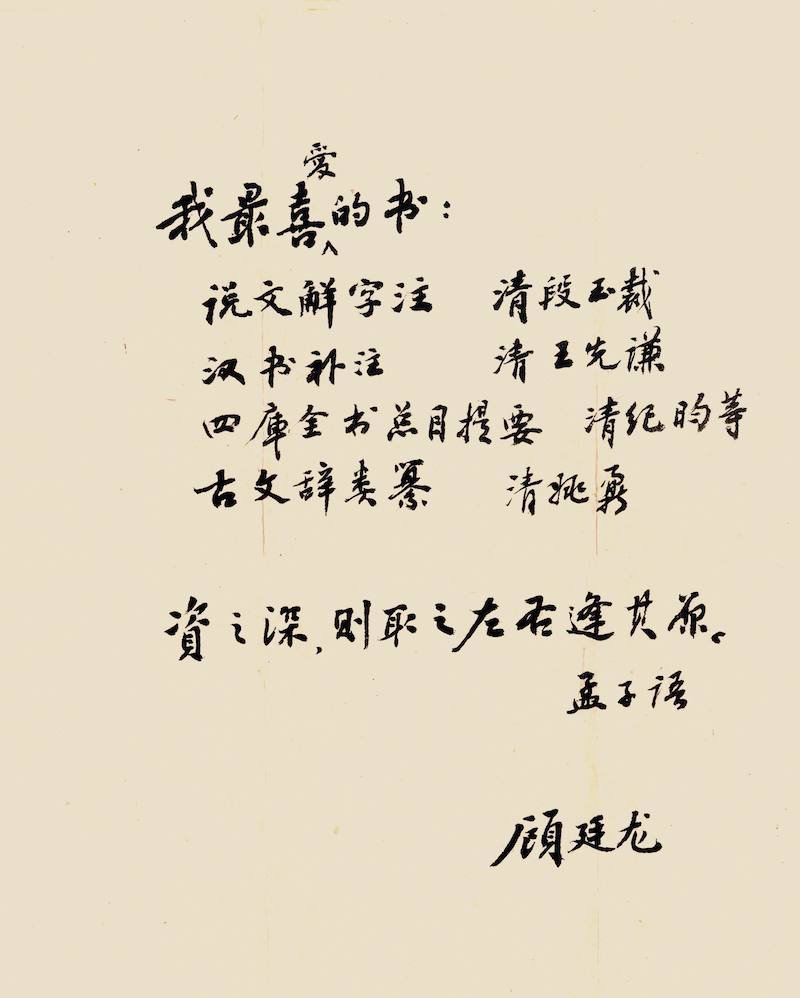 我最喜愛的书：
说文解字注 清段玉裁
汉书补注 清王先谦
四庫全书总目提要 清纪昀等
古文辞类纂 清姚鼐
資之深，则取之左右逢其原。
孟子语
顾廷龙